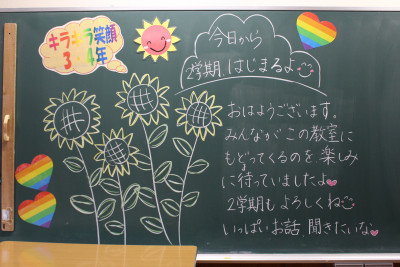 キラキラ笑顔
3・4年
今日から
2学期、はじまるよ
おはようございます。
みんながこの教室に
もどってくるのを楽しみ
に待っていましたよ
2学期もよろしくね
いっぱいお話、聞きたいな